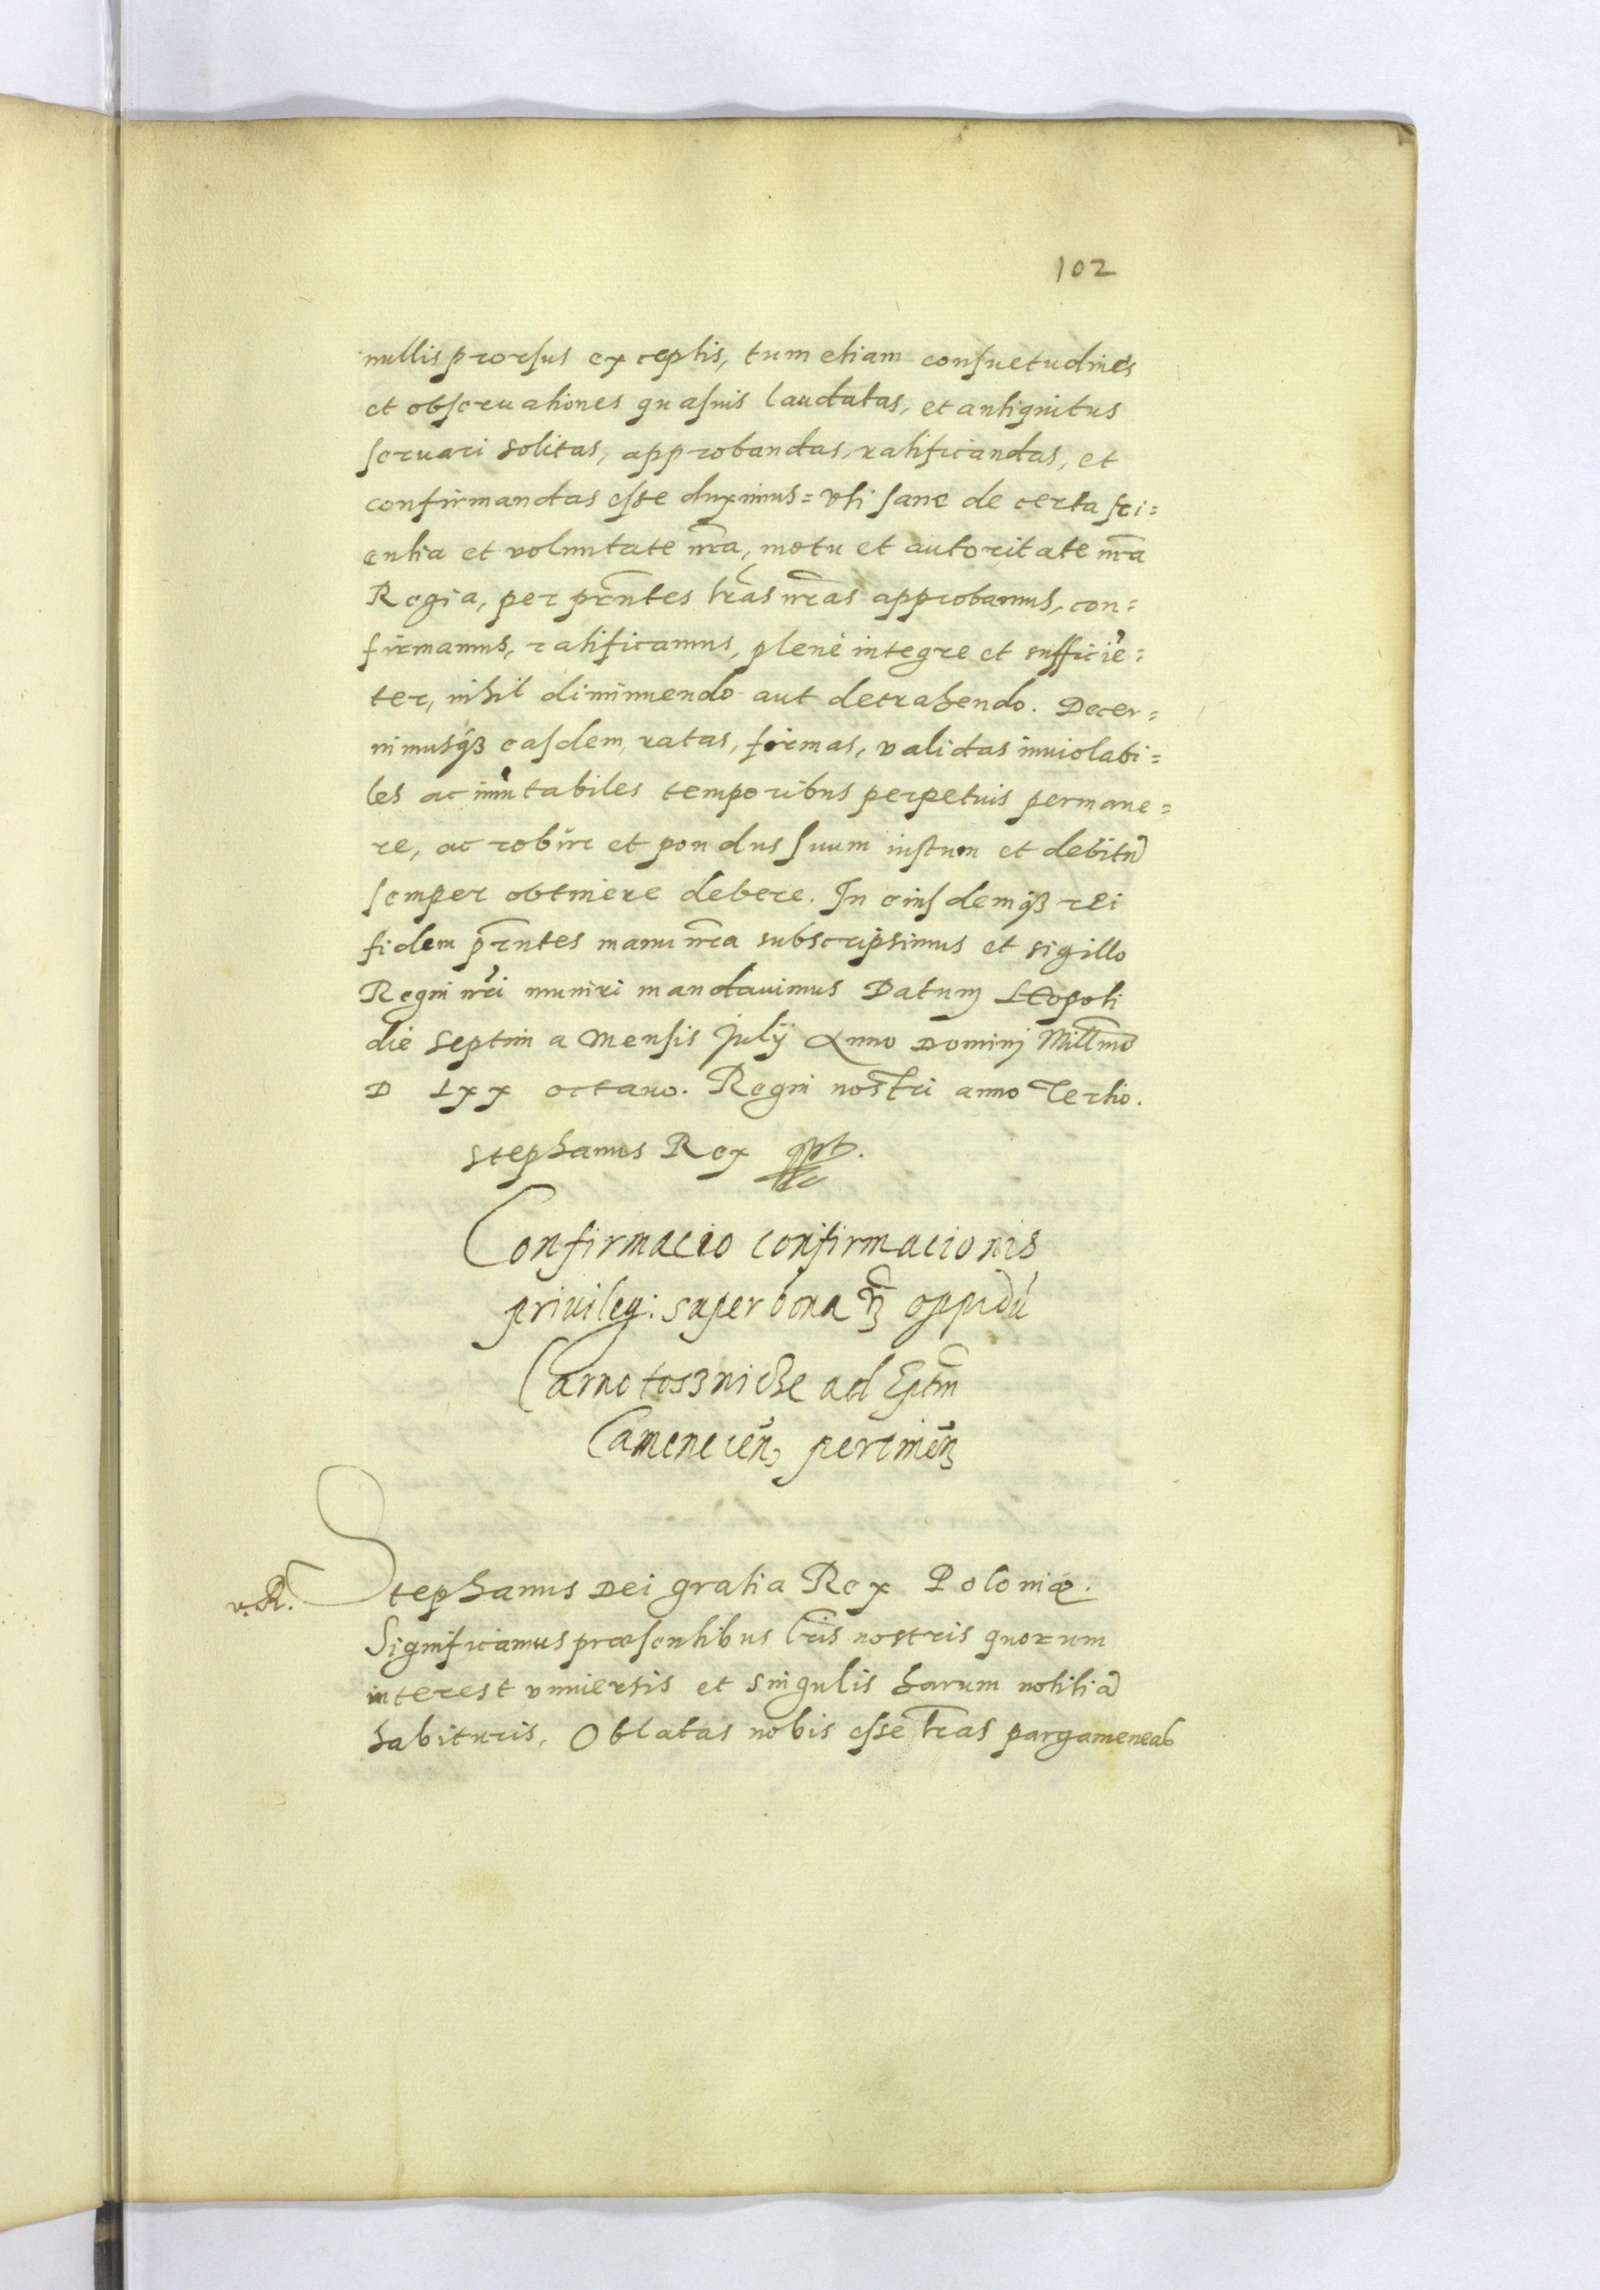 102
nullis prorsus exceptis, tum etiam consuetudines
et obseruationes quasuis laudatas, et antiquitus
seruari solitas, approbandas, ratificandas, et
confirmandas esse duximus = vti sane de certa sci=
entia et voluntate nr̃a, motu et autoritate nr̃a
Regia, per pr̃ntes lr̃as nr̃as approbamus, con=
firmamus, ratificamus, plene integre et sufficiẽ=
ter, nihil diminuendo aut detrahendo. Decer=
nimusqꝫ easdem, ratas, firmas, validas inuiolabi=
les ac imũtabiles temporibus perpetuis permane=
re, ac robur et pondus suum iustum et debitũ
semper obtinere debere. In eiusdemqꝫ rei
fidem pr̃ntes manu nr̃a subscripsimus et sigillo
Regni nr̃i muniri mandauimus Datum Leopoli
die septima Mensis Julij Anno Domini Millm̃o
D Lxx octauo. Regni nostri anno Tertio.
Stephanus Rex
Confirmacio confirmacionis
priuileg: super bona oppidũ
Carnotoszniche ad Ep̃tm
Camenecen̄ pertinen̄
v. R.
Stephanus Dei gratia Rex Poloniæ.
Significamus præsentibus lr̃is nostris quorum
interest vniuersis et singulis harum notitiã
habituris, Oblatas nobis esse lr̃as pargameneas